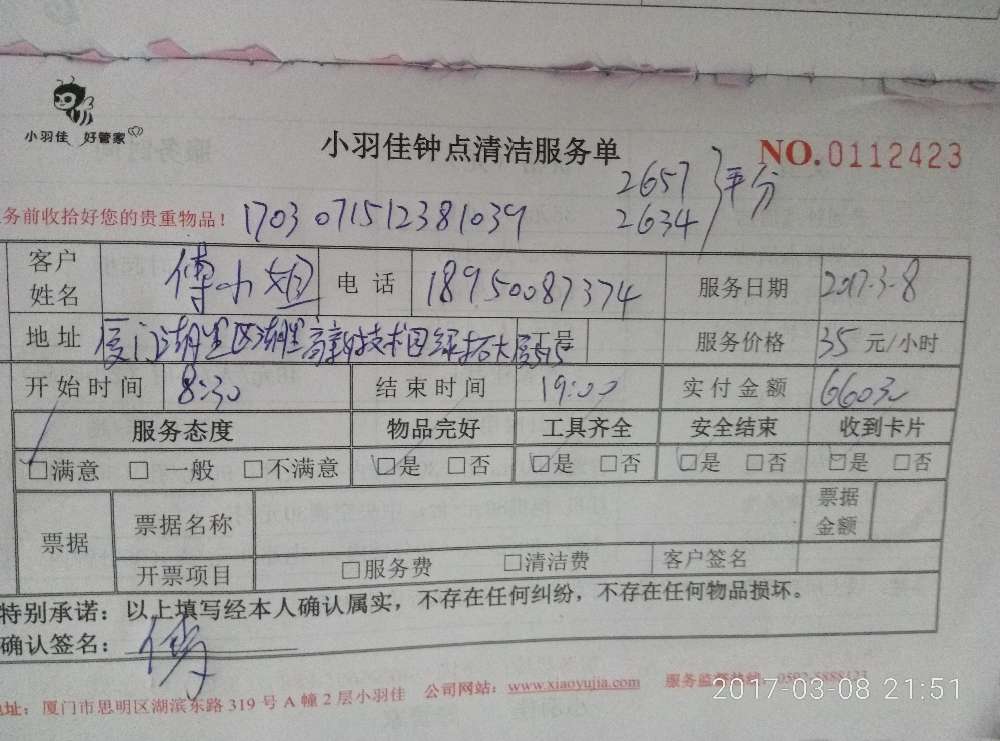 小羽佳 好管家
小羽佳钟点清洁服务单
NO.0112423
务前收拾好您的贵重物品！ 1703071512381039
2657
2634 平分
客户姓名 傅小姐 电话 18950087374 服务日期 2017-3-8
地址 厦门湖里区湖里高新技术园 大厦515 服务价格 35元/小时
开始时间 8:30 结束时间 19:00 实付金额 660元
服务态度 物品完好 工具齐全 安全结束 收到卡片
□满意 □一般 □不满意 □是 □否 □是 □否 □是 □否 □是 □否
票据 票据名称 票据金额
开票项目 □服务费 □清洁费 客户签名
特别承诺：以上填写经本人确认属实，不存在任何纠纷，不存在任何物品损坏。
确认签名：傅
地址：厦门市思明区湖滨东路319号A幢2层小羽佳 公司网站：www.xiaoyujia.com 服务监
2017-03-08 21:51